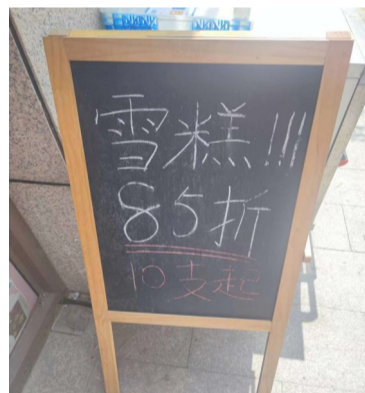 雪糕!!!
85折
10支起